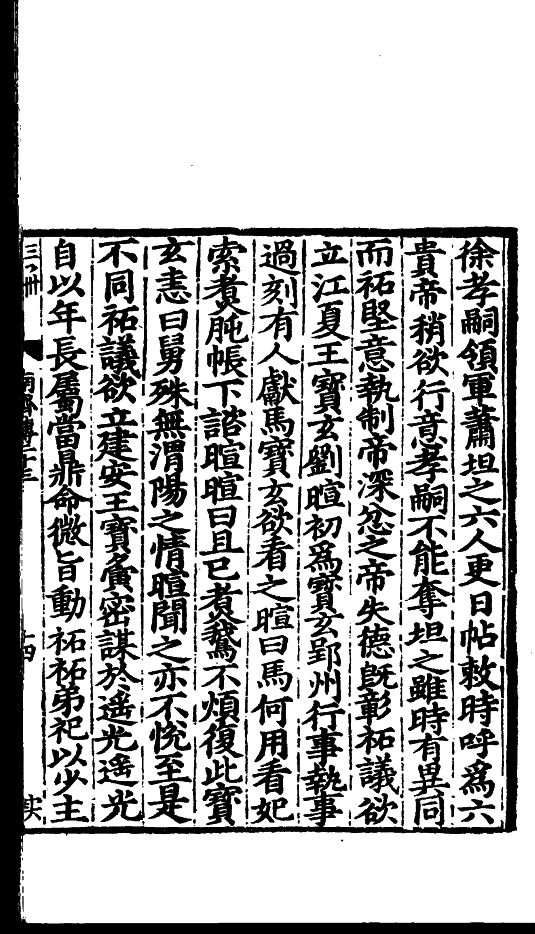 徐孝嗣領軍蕭坦之六人更日帖敕時呼爲六
貴帝稍欲行意孝嗣不能奪坦之雖時有異同
而祏堅意執制帝深忿之帝失德旣彰祏議欲
立江夏王寶玄劉暄初爲寶玄郢州行事執事
過刻有人獻馬寶玄欲看之暄曰馬何用看妃
索煑肫帳下諮暄暄曰且已煑鵞不煩復此寶
玄恚曰舅殊無渭陽之情暄聞之亦不悅至是
不同祏議欲立建安王寶夤密謀於遙光遙光
自以年長屬當鼎命微旨動祏祏弟祀以少主